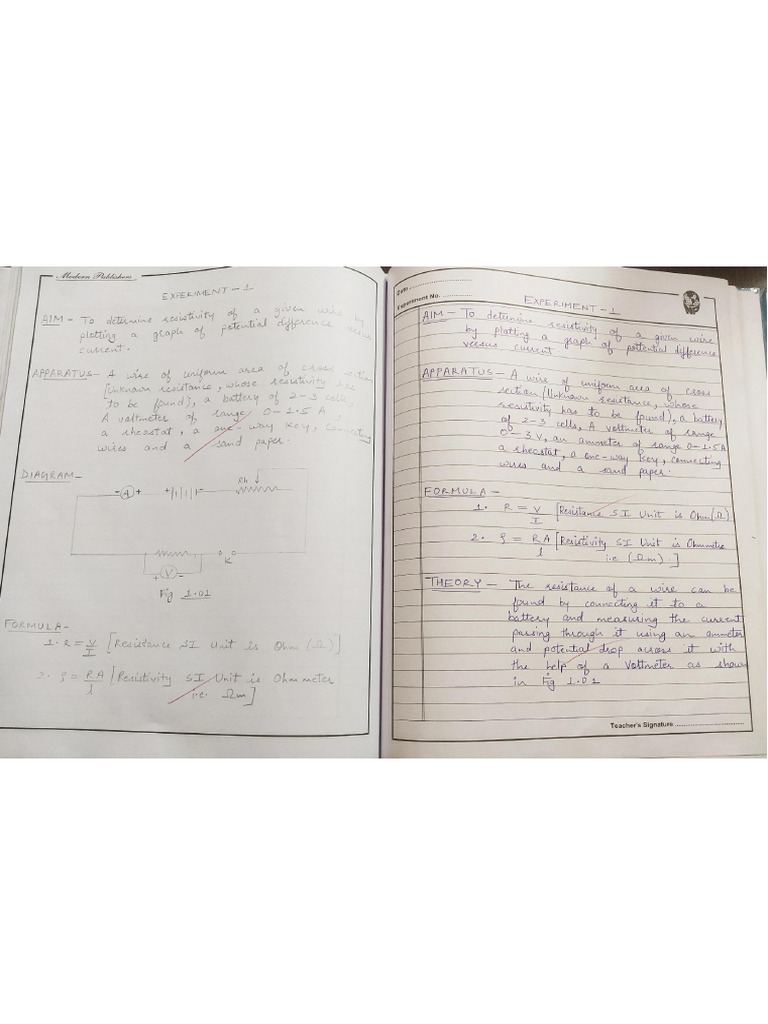 Modern Publishers
EXPERIMENT - 1
AIM - To determine resistivity of a given wire by
plotting a graph of potential difference versus
current.
APPARATUS - A wire of uniform area of cross section
(Unknown resistance, whose resistivity has
to be found), a battery of 2-3 cells,
A voltmeter of range 0-1.5 A,
a rheostat, a one-way key, connecting
wires and a sand paper.
DIAGRAM -
- A +
+ -
Rh
K
+ V -
Fig 1.01
FORMULA -
1. R = V/I [Resistance SI Unit is Ohm (Ω)]
2. ρ = RA/l [Resistivity SI Unit is Ohm meter
i.e. Ωm]
Date
Experiment No.
EXPERIMENT - 1
AIM - To determine resistivity of a given wire
by plotting a graph of potential difference
versus current
APPARATUS - A wire of uniform area of cross
section (Unknown resistance, whose
resistivity has to be found), a battery
of 2-3 cells, A voltmeter of range
0-3 V, an ammeter of range 0-1.5A
a rheostat, a one-way key, connecting
wires and a sand paper.
FORMULA -
1. R = V/I [Resistance SI Unit is Ohm (Ω)
2. ρ = RA/l [Resistivity SI Unit is Ohmmetre
i.e (Ωm).]
THEORY - The resistance of a wire can be
found by connecting it to a
battery and measuring the current
passing through it using an ammeter
and potential drop across it with
the help of a voltmeter as shown
in Fig 1.01
Teacher's Signature